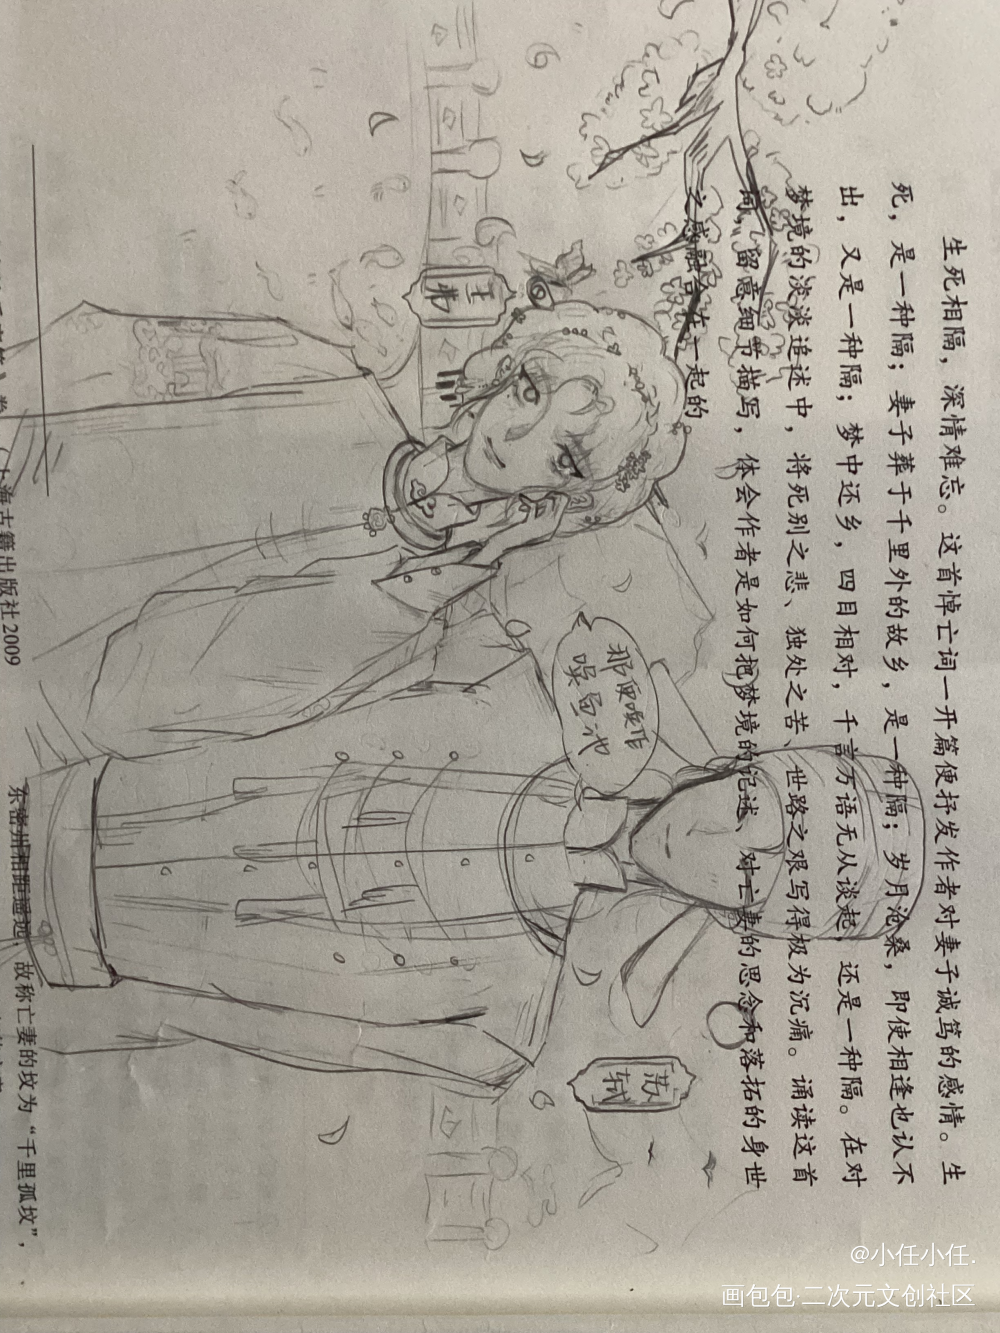 生死相隔，深情难忘。这首悼亡词一开篇便抒发作者对妻子诚笃的感情。生
死，是一种隔；妻子葬于千里外的故乡，是一种隔；岁月沧桑，即使相逢也认不
出，又是一种隔；梦中还乡，四目相对，千言万语无从谈起，还是一种隔。在对
梦境的淡淡追述中，将死别之悲、独处之苦、世路之艰写得极为沉痛。诵读这首
词，留意细节描写，体会作者是如何把梦境的记述、对亡妻的思念和落拓的身世
之感融合在一起的
王弗
那便唤作
唤鱼池
苏轼
上海古籍出版社2009
东密州相距遥远，故称亡妻的坟为“千里孤坟”，
@小任小任.
画包包·二次元文创社区